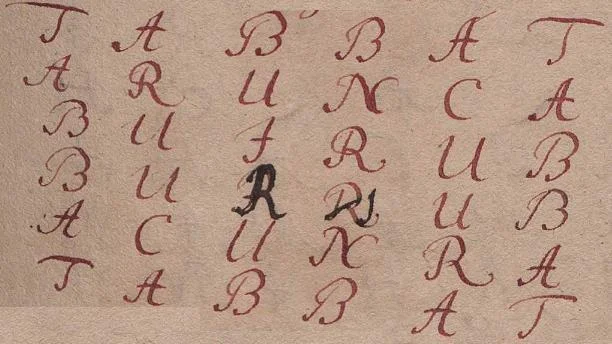 T A B B A T
A R U N C A
B U I R U B
B U R U B
A C U N R A
T A B B A T